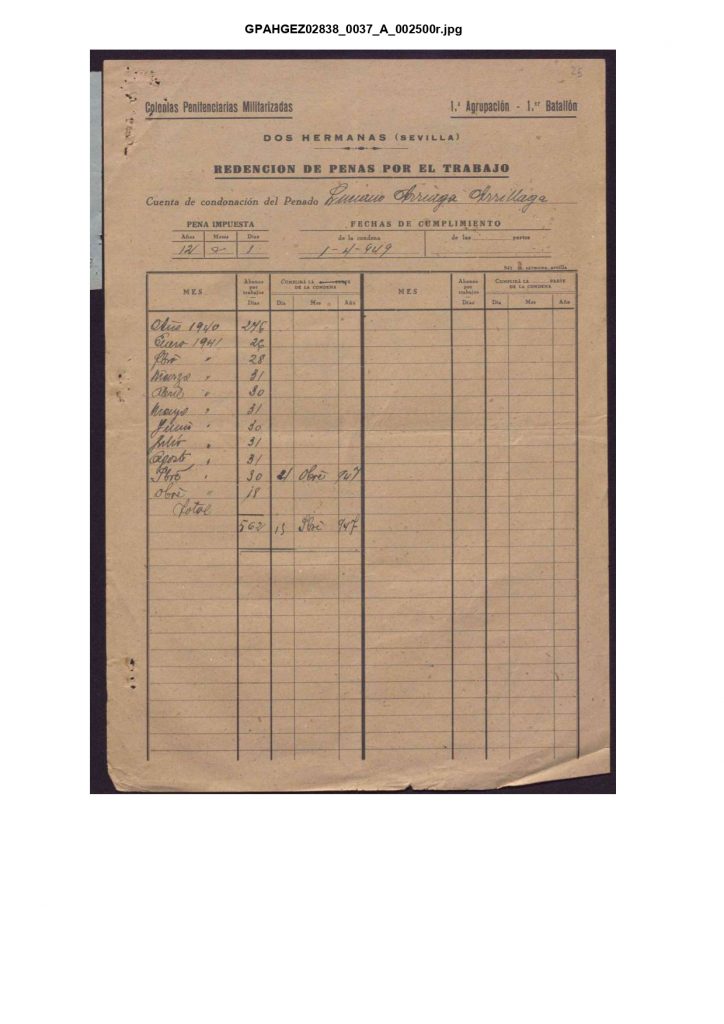 GPAHGEZ02838_0037_A_002500r.jpg
25
Colonias Penitenciarias Militarizadas
1.ª Agrupación - 1.er Batallón
DOS HERMANAS (SEVILLA)
REDENCION DE PENAS POR EL TRABAJO
Cuenta de condonación del Penado Luciano Arriaga Arrillaga
PENA IMPUESTA
FECHAS DE CUMPLIMIENTO
Años Meses Días
de la condena
de las partes
12 1
1-4-949
MES
Abonos por trabajos
Días
CUMPLIRÁ LA PARTE DE LA CONDENA
Día Mes Año
MES
Abonos por trabajos
Días
CUMPLIRÁ LA PARTE DE LA CONDENA
Día Mes Año
Año 1940 276
Enero 1941 26
fbro " 28
Marzo " 31
Abril " 30
Mayo " 31
Junio " 30
Julio " 31
Agosto " 31
Sbre " 30 21 Obre 947
Obre " 18
total
562 13 Sbre 947